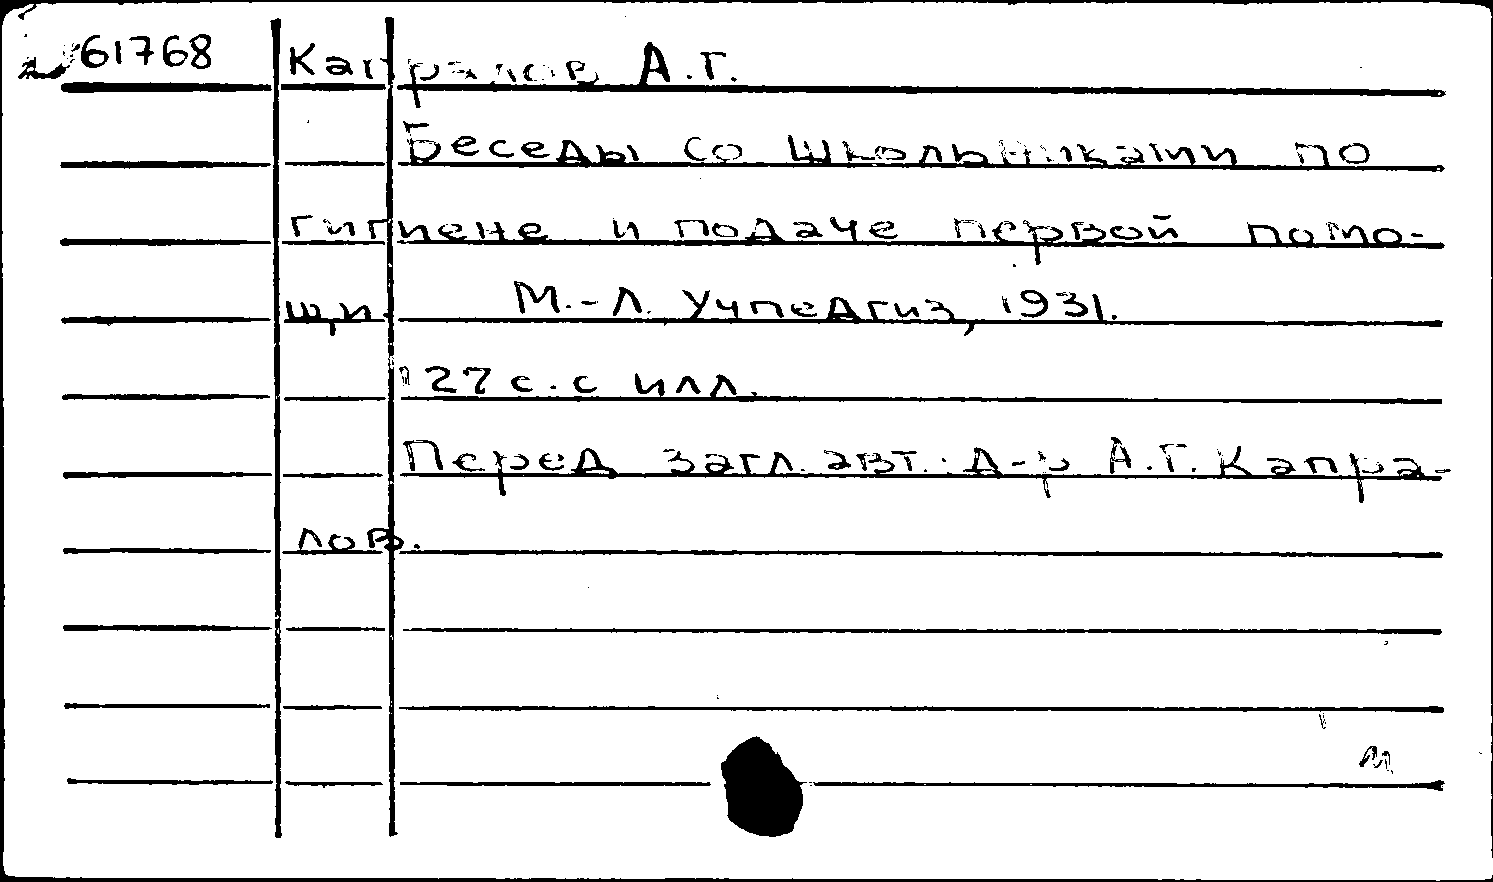 61768 Капралов А.Г.
Беседы со школьниками по
гигиене и подаче первой помо-
щи. М.-Л. Учпедгиз, 1931.
27 с. с илл.
Перед загл. авт.: д-р А.Г. Капра-
лов.